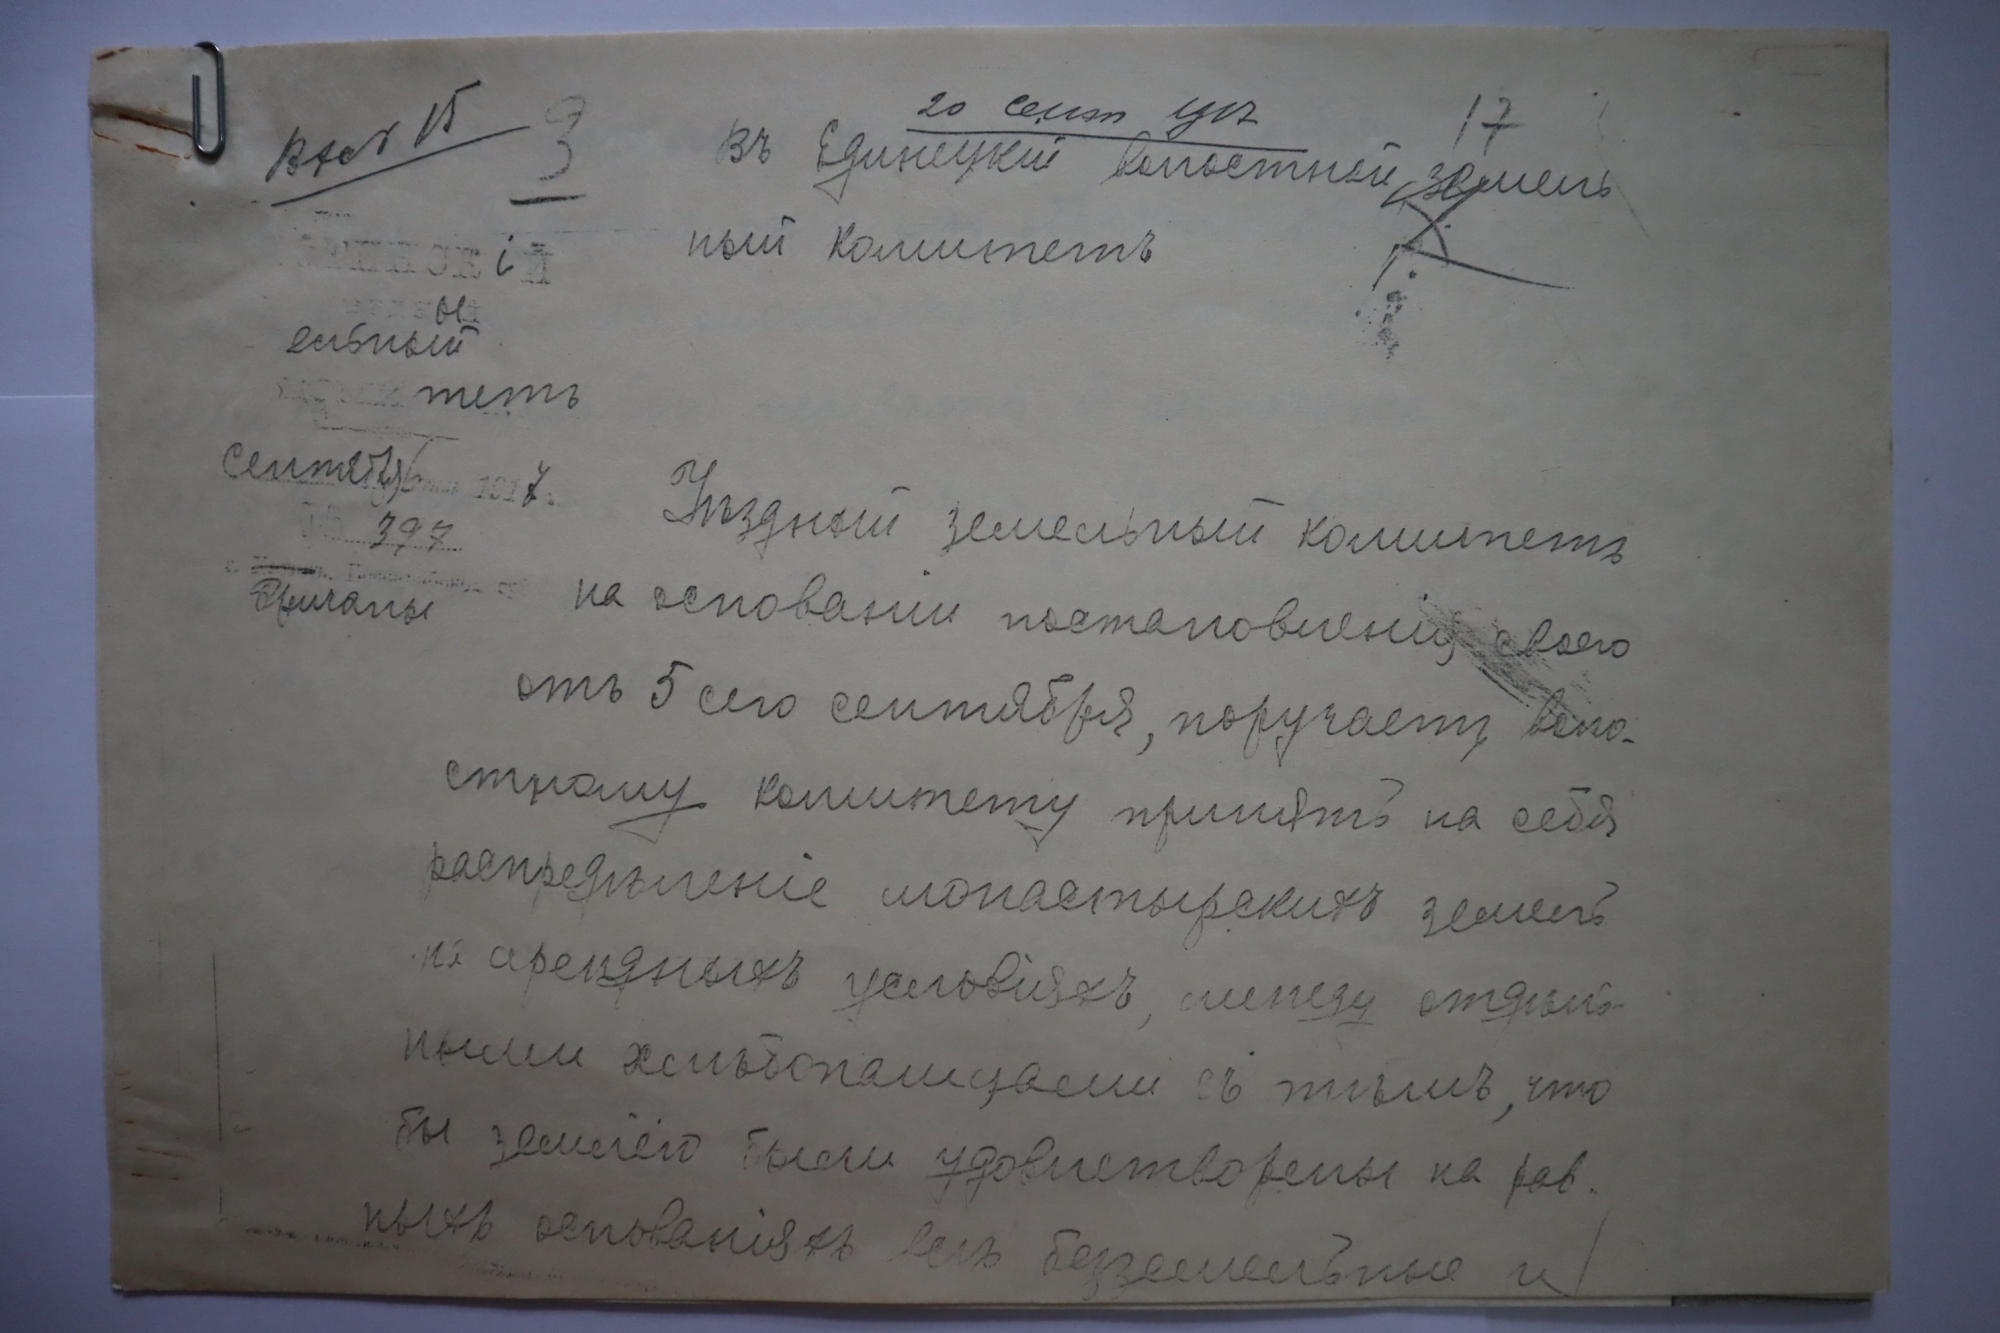 20 сент 1917
17
3
Въ Единецкій волостной земель
ный комитетъ
ельный
тетъ
Сентября 1917.
397
Бричаны
Уѣздный земельный комитетъ
на основаніи постановленія своего
отъ 5 сего сентября, поручаетъ воло-
стному комитету принять на себя
распредѣленіе монастырскихъ земель
на арендныхъ условіяхъ, между
ными хлѣбопашцами съ тѣмъ, что
бы землею были удовлетворены на рав-
ныхъ основаніяхъ всѣ безземельные и